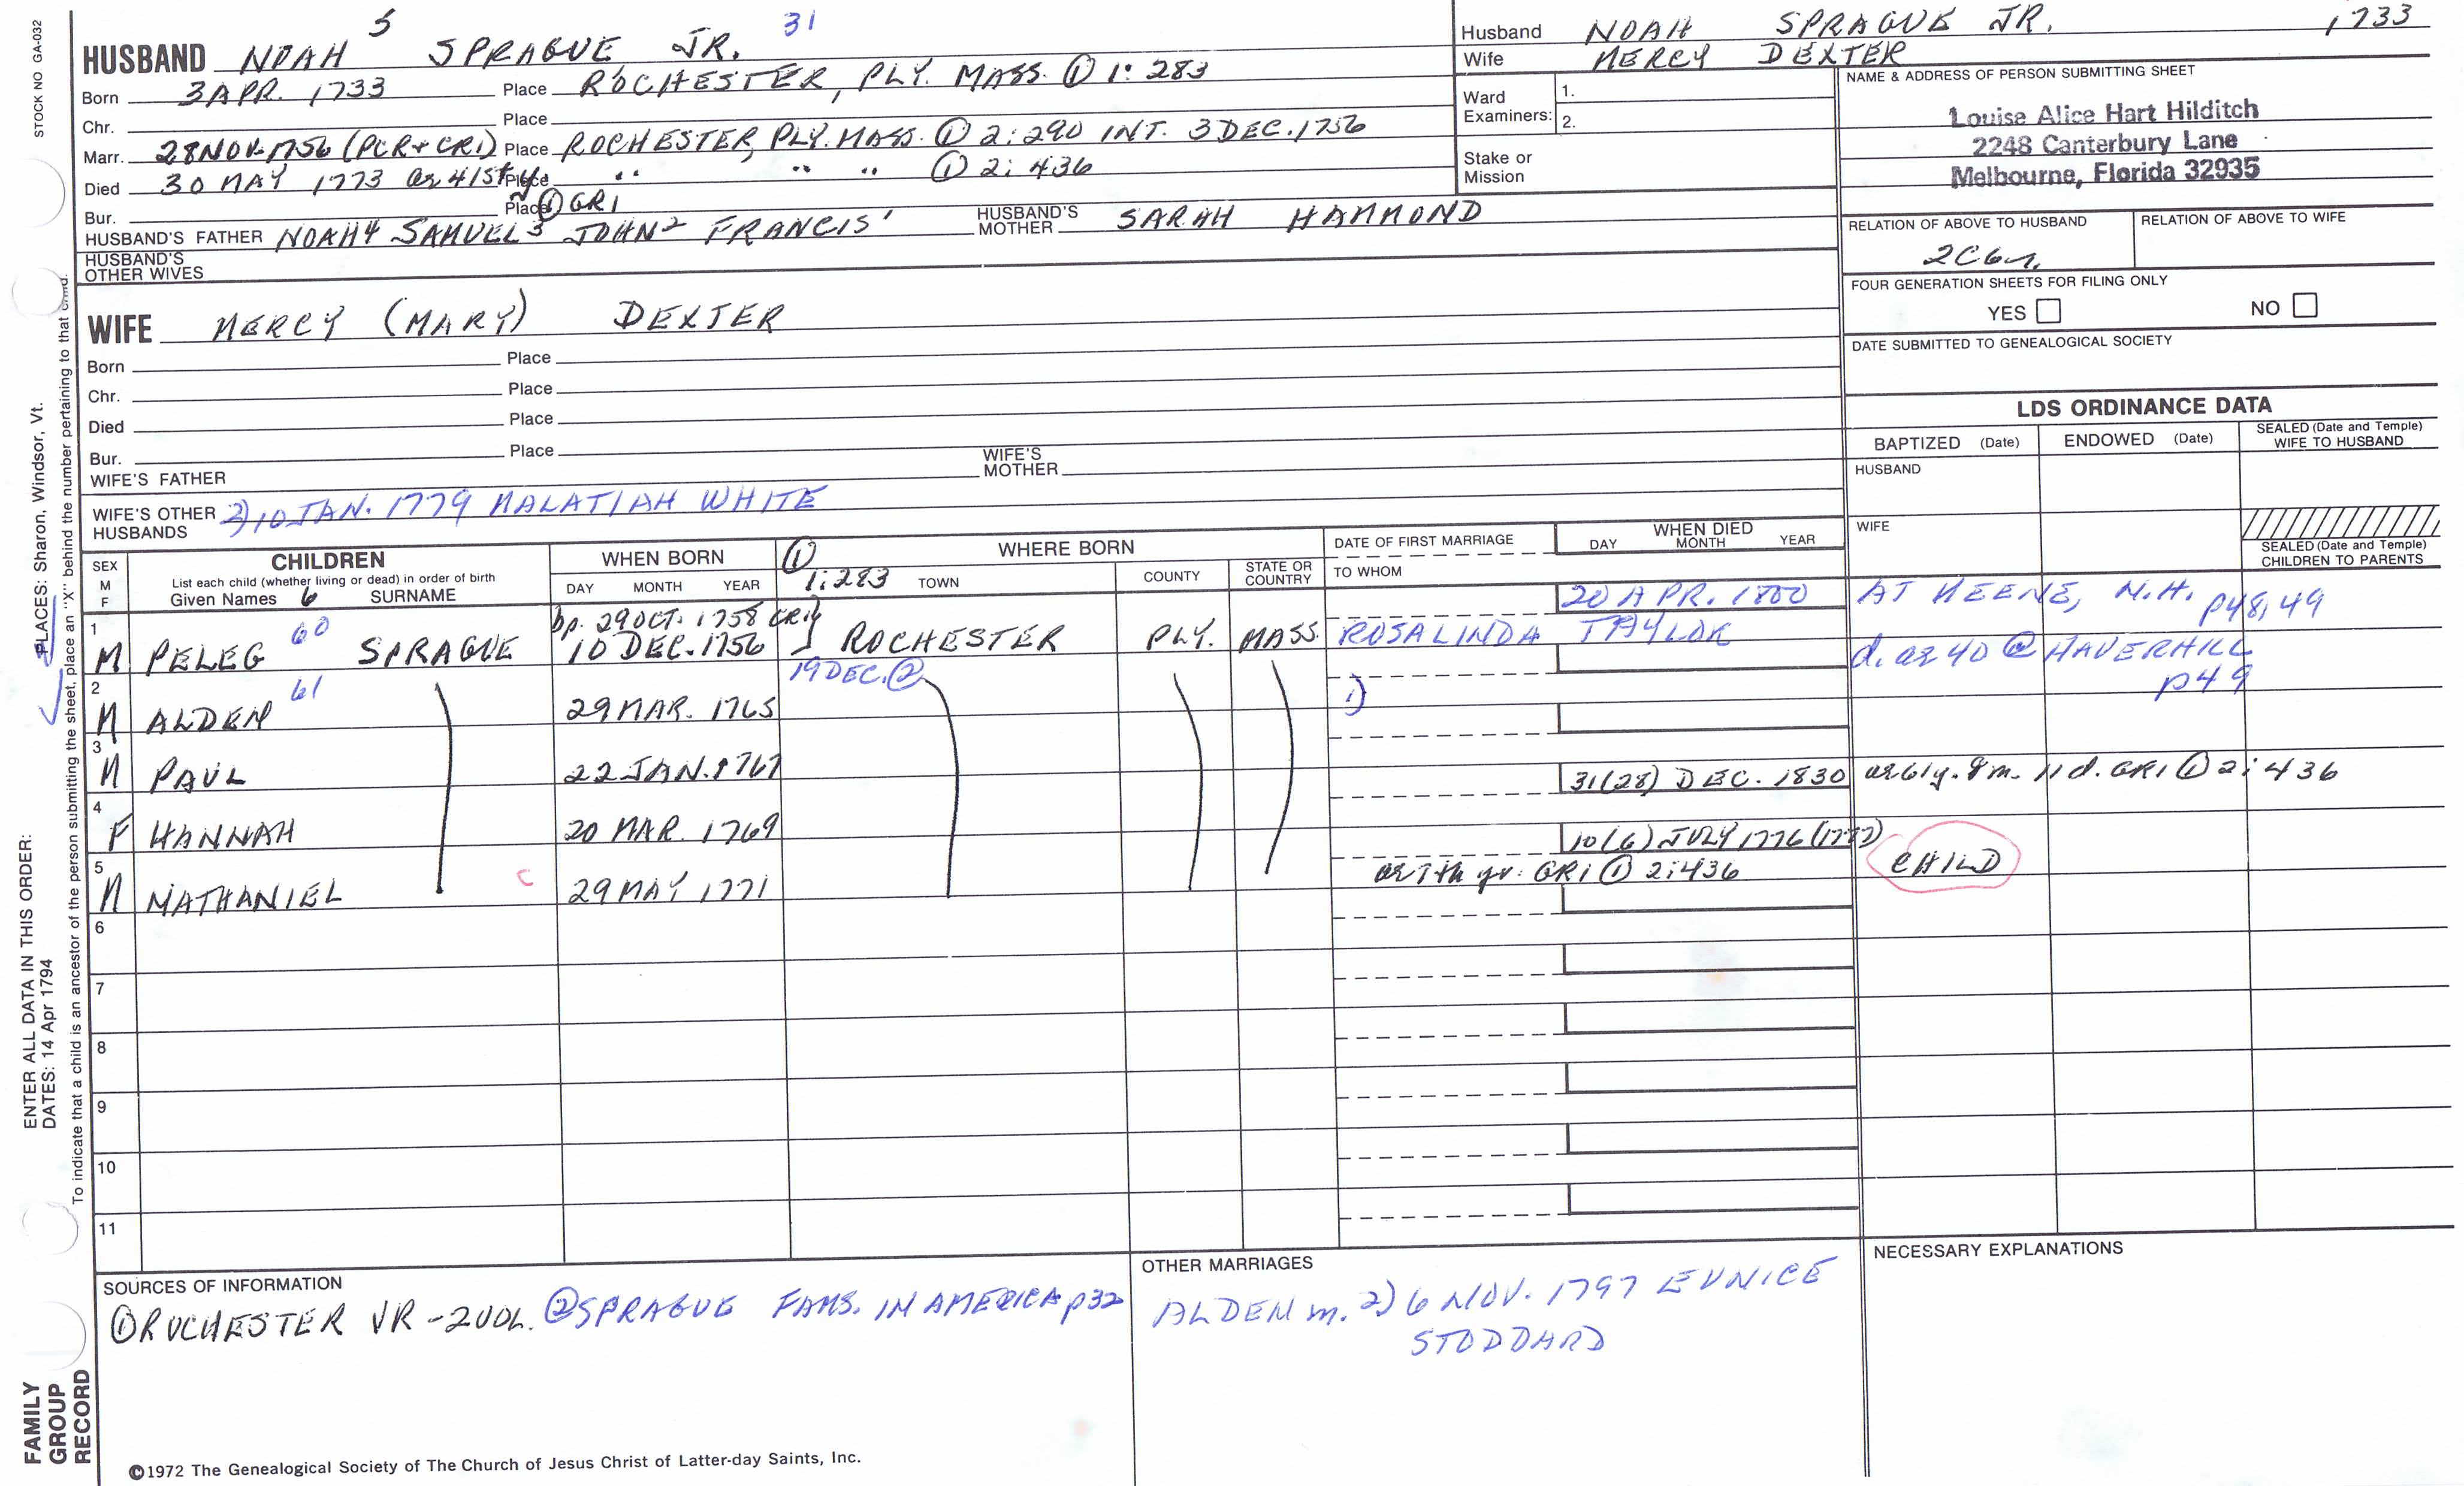 STOCK NO GA-032
HUSBAND NOAH 5 SPRAGUE JR. 31
Born 3 APR. 1733 Place ROCHESTER, PLY. MASS. ① 1: 283
Chr. Place
Marr. 28 NOV. 1756 (PCR + CR1) Place ROCHESTER, PLY. MASS. ① 2: 290 INT. 3 DEC. 1756
Died 30 MAY 1773 ae 41st y. Place " " " ① 2: 436
Bur. Place ① GR1
HUSBAND'S FATHER NOAH 4 SAMUEL 3 JOHN 2 FRANCIS ' HUSBAND'S MOTHER SARAH HAMMOND
HUSBAND'S
OTHER WIVES
Husband NOAH SPRAGUE JR. 1733
Wife MERCY DEXTER
Ward
Examiners:
1.
2.
Stake or
Mission
NAME & ADDRESS OF PERSON SUBMITTING SHEET
Louise Alice Hart Hilditch
2248 Canterbury Lane
Melbourne, Florida 32935
RELATION OF ABOVE TO HUSBAND RELATION OF ABOVE TO WIFE
2C6r.
FOUR GENERATION SHEETS FOR FILING ONLY
YES NO
DATE SUBMITTED TO GENEALOGICAL SOCIETY
WIFE MERCY (MARY) DEXTER
Born Place
Chr. Place
Died Place
Bur. Place
WIFE'S FATHER WIFE'S MOTHER
WIFE'S OTHER HUSBANDS 2) 10 JAN. 1779 MALATIAH WHITE
LDS ORDINANCE DATA
BAPTIZED (Date) ENDOWED (Date) SEALED (Date and Temple) WIFE TO HUSBAND
HUSBAND
WIFE
SEALED (Date and Temple)
CHILDREN TO PARENTS
SEX
M
F
CHILDREN
List each child (whether living or dead) in order of birth
Given Names 6 SURNAME
WHEN BORN
DAY MONTH YEAR
① 1: 283
WHERE BORN
TOWN COUNTY STATE OR COUNTRY
DATE OF FIRST MARRIAGE
TO WHOM
WHEN DIED
DAY MONTH YEAR
bp. 29 OCT. 1758 CR1 20 APR. 1800 AT KEENE, N.H. p48,49
1 M PELEG 60 SPRAGUE 10 DEC. 1756 } ROCHESTER PLY. MASS. ROSALINDA TAYLOR
19 DEC. ② d. ae 40 @ HAVERHILL
p49
2 M ALDEN 61 29 MAR. 1765 1)
3 M PAUL 22 JAN. 1767 31 (28) DEC. 1830 ae 61y. 8m. 11d. GR1 ① 2: 436
4 F HANNAH 20 MAR. 1769 10 (6) JULY 1776 (1777)
ae 7th yr. GR1 ① 2: 436 CHILD
5 M NATHANIEL C 29 MAY 1771
6
7
8
9
10
11
SOURCES OF INFORMATION
① ROCHESTER VR - 2 VOL. ② SPRAGUE FAMS. IN AMERICA p32
OTHER MARRIAGES
ALDEN m. 2) 6 NOV. 1797 EUNICE
STODDARD
NECESSARY EXPLANATIONS
©1972 The Genealogical Society of The Church of Jesus Christ of Latter-day Saints, Inc.
FAMILY
GROUP
RECORD
ENTER ALL DATA IN THIS ORDER:
DATES: 14 Apr 1794 PLACES: Sharon, Windsor, Vt.
To indicate that a child is an ancestor of the person submitting the sheet, place an "X" behind the number pertaining to that child.